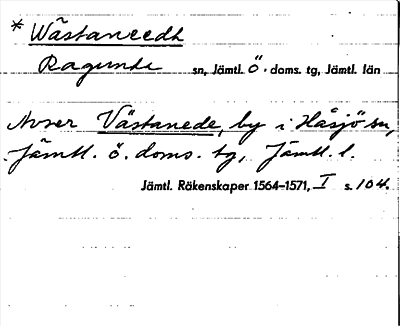 * Wästaneedh
Ragunda sn, Jämtl. Ö. doms. tg, Jämtl. län
Avser Västanede, by i Håsjö sn,
Jämtl. ö. doms. tg, Jämtl. l.
Jämtl. Räkenskaper 1564-1571, I s. 104.